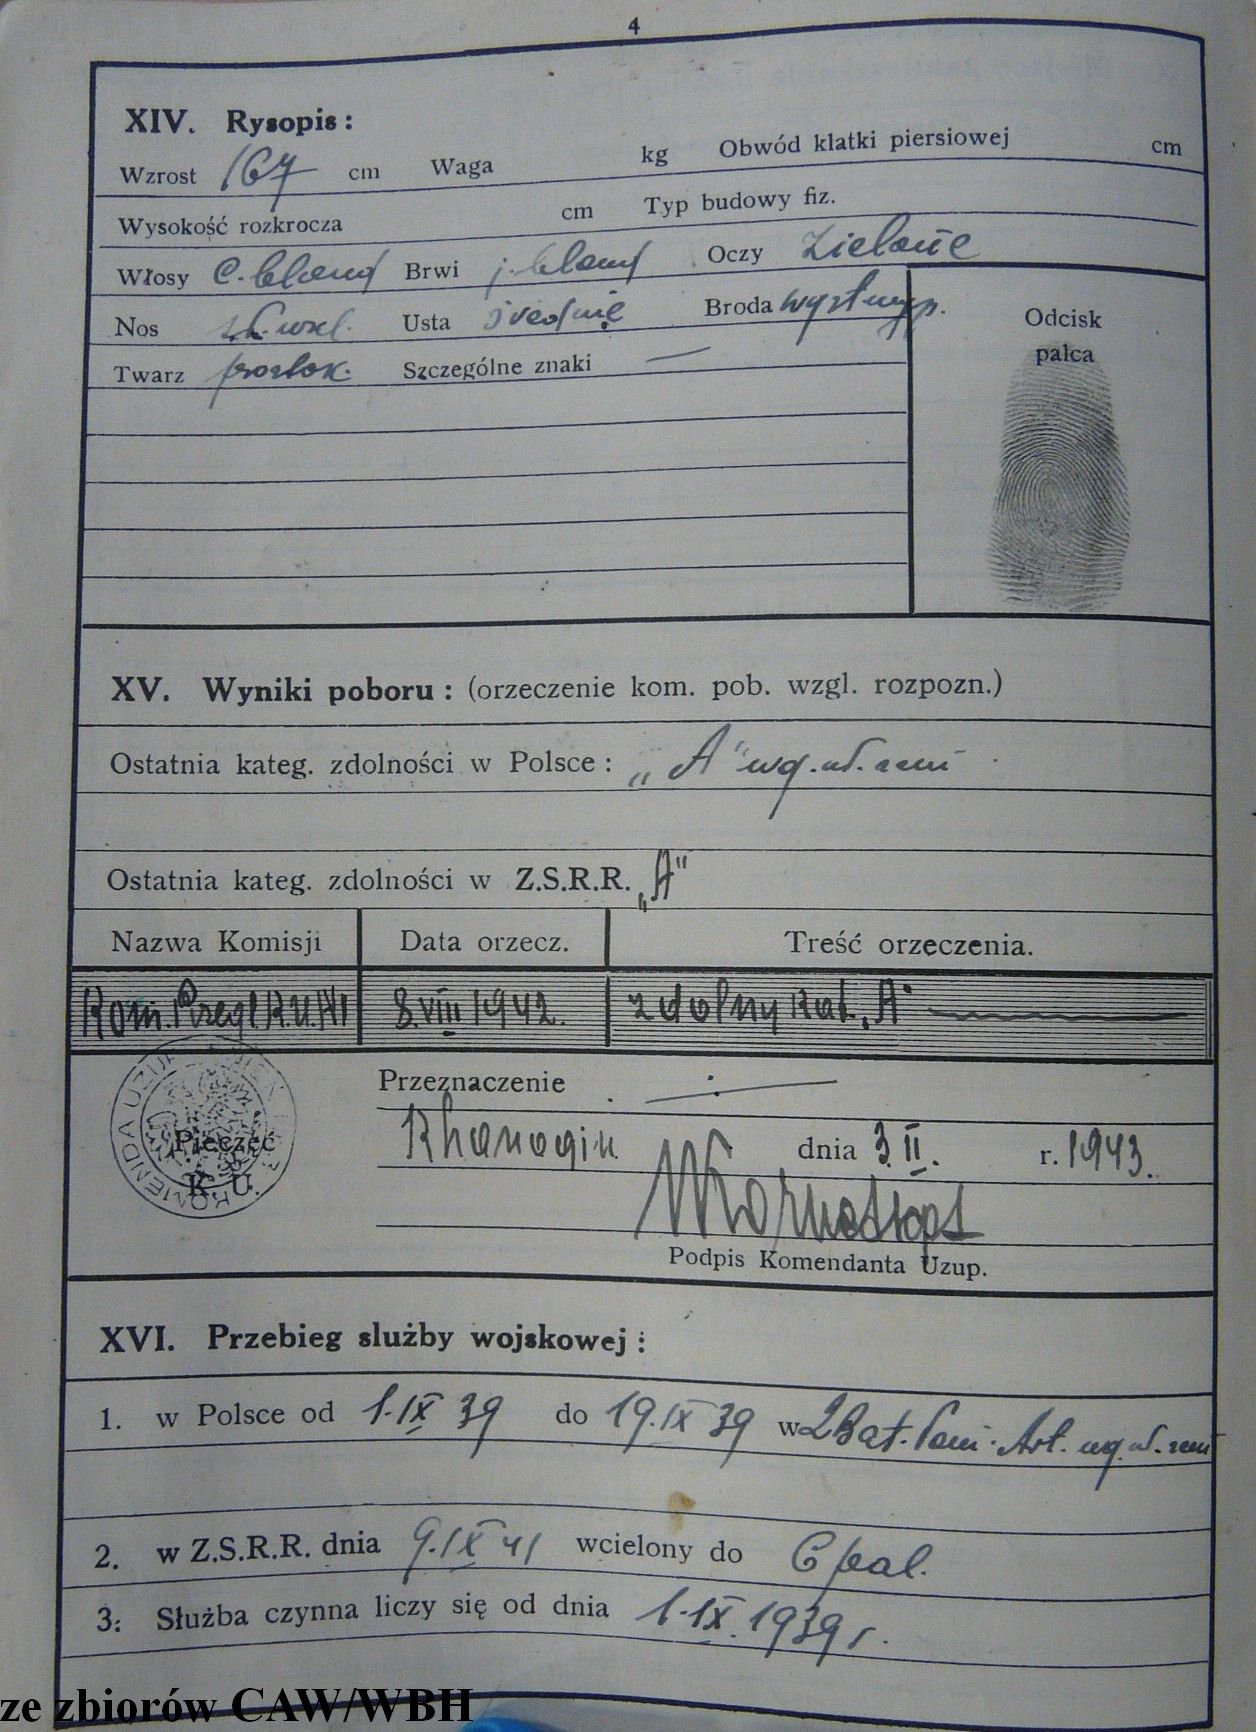 4
XIV. Rysopis:
Wzrost 167 cm Waga kg Obwód klatki piersiowej cm
Wysokość rozkrocza cm Typ budowy fiz.
Włosy c. blond Brwi j. blond Oczy Zielone
Nos Usta średnie Broda występ.
Twarz Szczególne znaki —
Odcisk
palca
XV. Wyniki poboru: (orzeczenie kom. pob. wzgl. rozpozn.)
Ostatnia kateg. zdolności w Polsce: „A" wg.
Ostatnia kateg. zdolności w Z.S.R.R. „A"
Nazwa Komisji Data orzecz. Treść orzeczenia.
Kom. Przegl. 8.VIII 1942. zdolny kat. „A"
Przeznaczenie —
Khanaqin dnia 3.II. r. 1943.
KOMENDA UZUP
Pieczęć
K. U.
Podpis Komendanta Uzup.
XVI. Przebieg służby wojskowej:
1. w Polsce od 1.IX 39 do 19.IX 39 w 2 Bat. Pom. Art. wg.
2. w Z.S.R.R. dnia 9.IX 41 wcielony do
3. Służba czynna liczy się od dnia 1.IX.1939 r.
ze zbiorów CAW/WBH